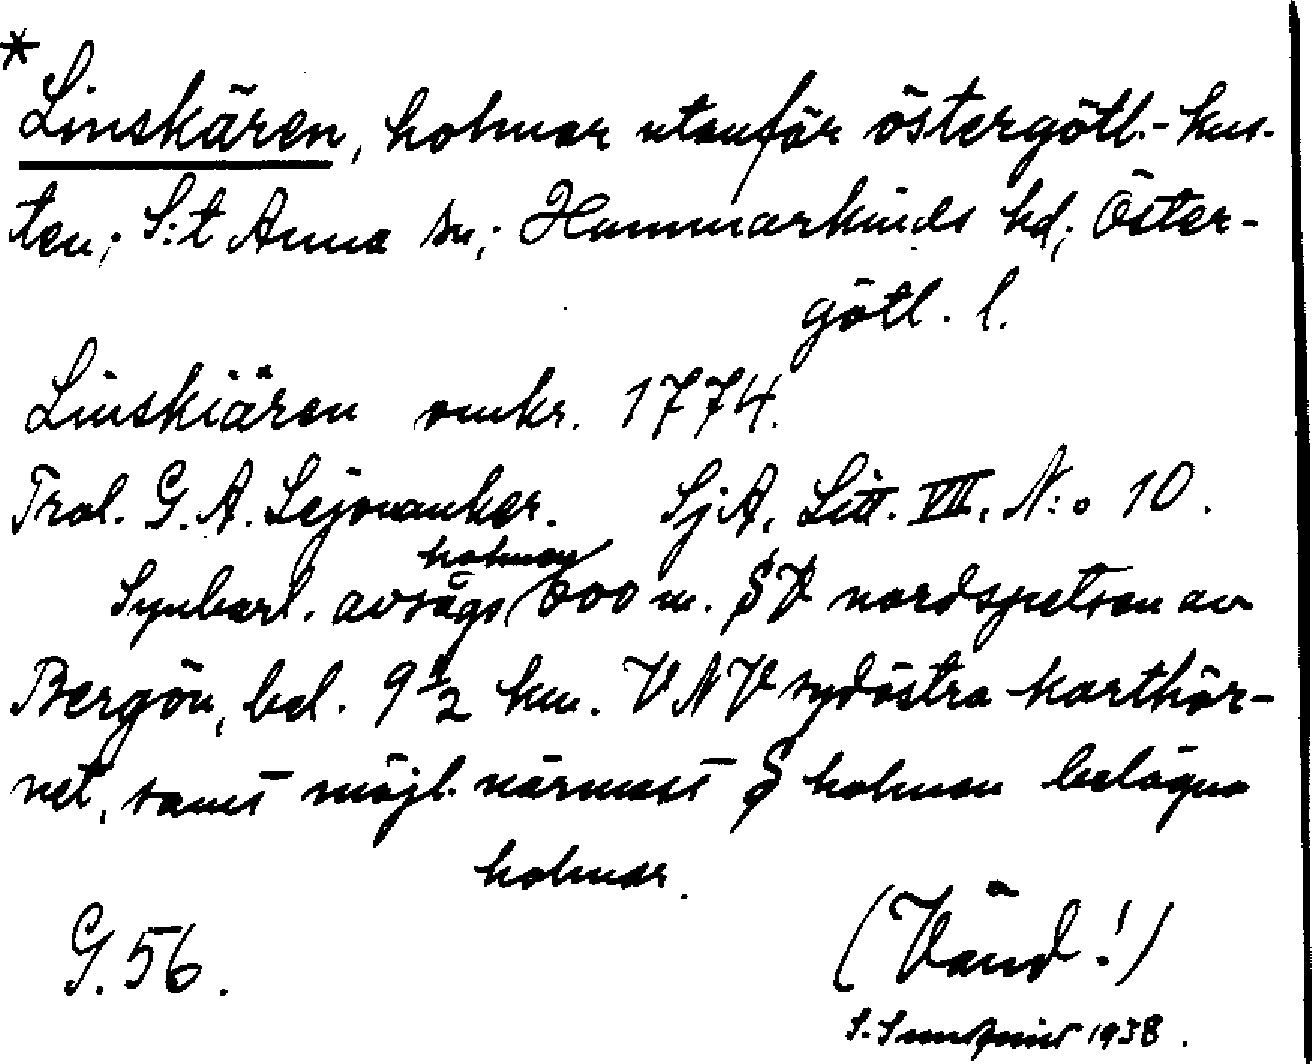 *
Linskären, holmar utanför östergötl.-kus-
ten; S:t Anna sn; Hammarkinds hd; Öster-
götl. l.
Linskiären omkr. 1774.
Trol. G. A. Lejonanker. SjA, Litt. VII, N:o 10.
holmen
Synbarl. avságs 600 m. SV nordspetsen av
Bergön, bel. 9 1/2 km. VNV sydöstra karthör-
net, samt möjl. närmast S holmen belägna
holmar.
G. 56. (Vänd!)
1938.